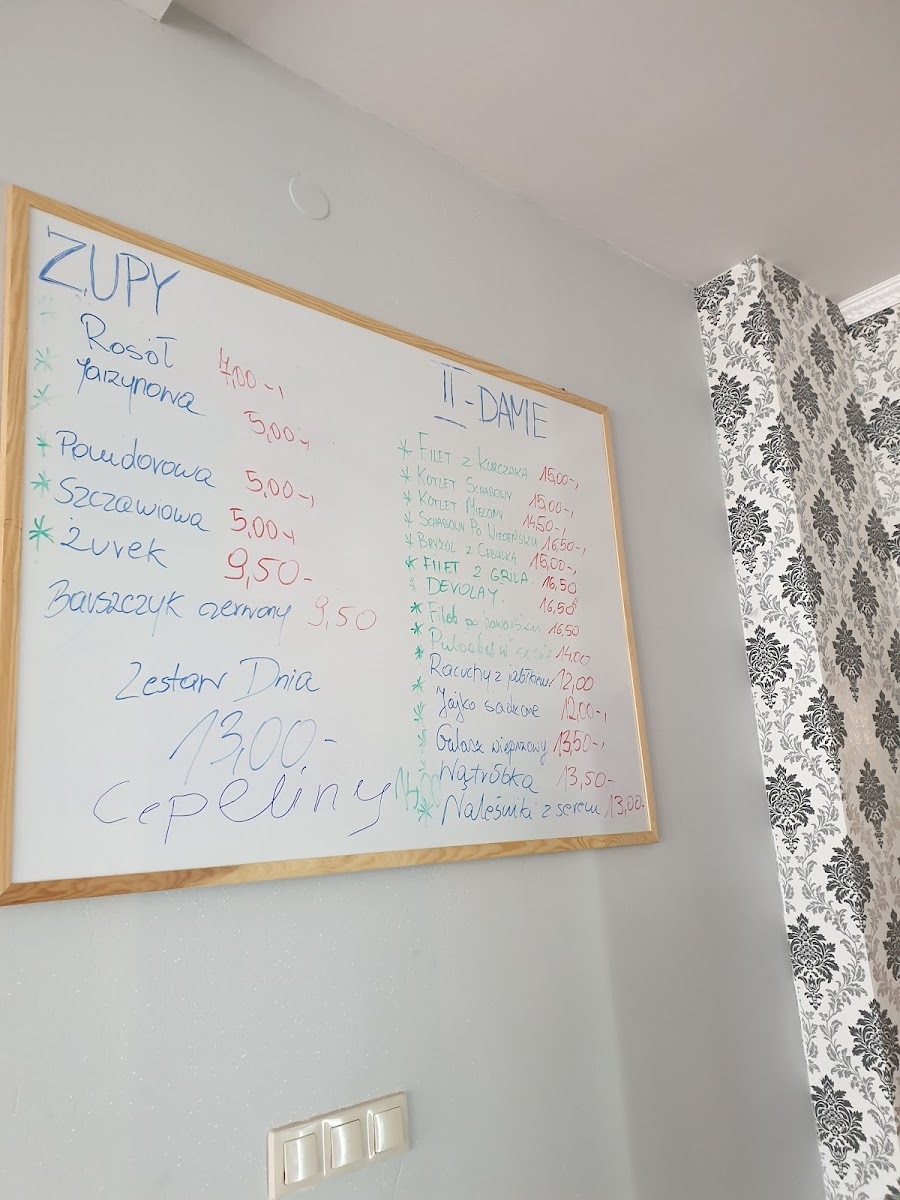 ZUPY
Rosół 4,00-,
Jarzynowa 5,00-,
Pomidorowa 5,00-,
Szczawiowa 5,00-,
Żurek 9,50-
Barszczyk czerwony 9,50
Zestaw Dnia
13,00-
Cepeliny
II-DANIE
FILET Z KURCZAKA 15,00-,
KOTLET SCHABOWY 15,00-,
KOTLET MIELONY 14,50-,
SCHABOWY PO WIEDEŃSKU 16,50-,
BRYZOL Z CEBULKĄ 15,00-,
FILET Z GRILA. 16,50
DEVOLAY. 16,50
Filet po 16,50
w sosie 14,00
Racuchy z jabłkiem 12,00
Jajko sadzone 12,00-,
Gulasz wieprzowy 13,50-,
Wątróbka 13,50-
Naleśniki z serem 13,00-